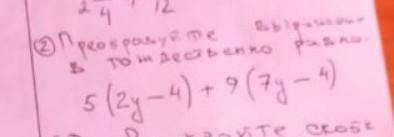 2 4 12
② Преобразуйте выражение
в тождественно равно.
5(2y-4)+9(7y-4)
скобк